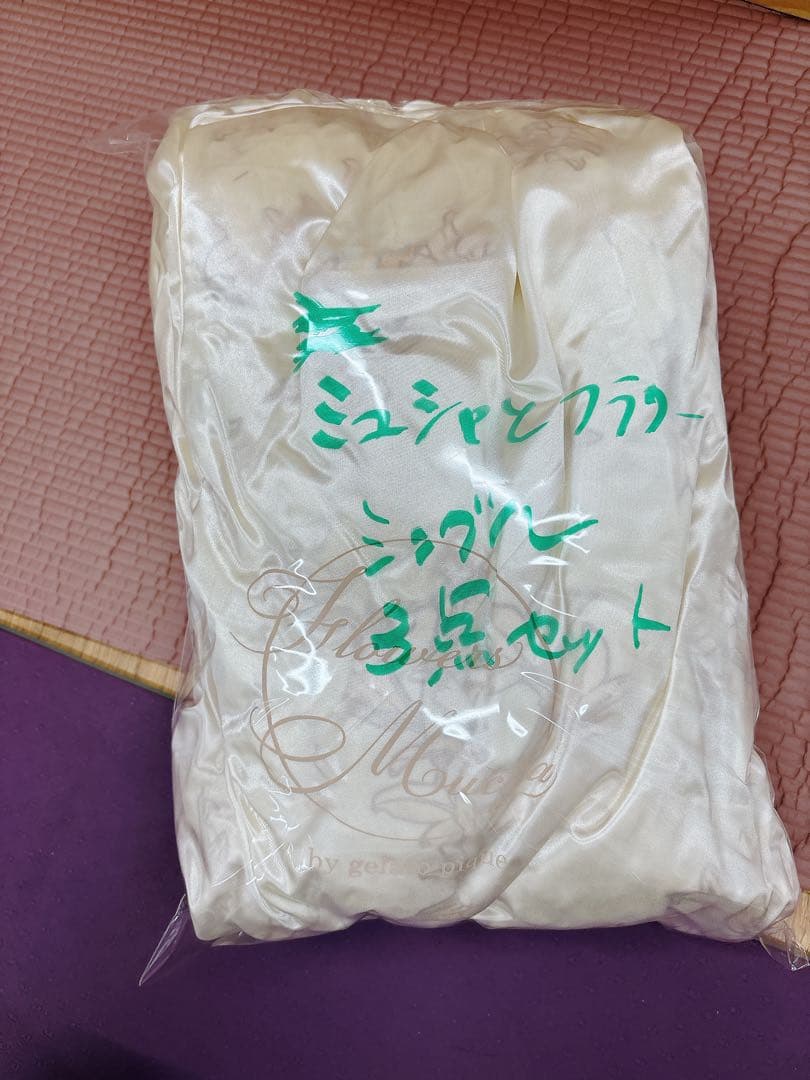 ミュシャとフラワー
シングル
3点セット
Flowers
Mucha
by gelato pique